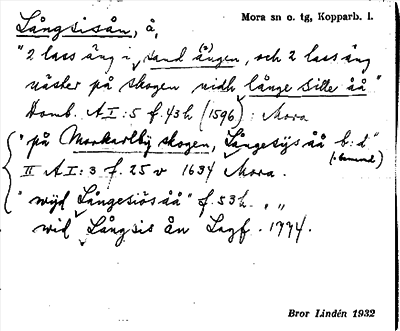 Långsisån, å,
Mora sn o. tg, Kopparb. l.
"2 lass äng i sand ången, och 2 lass äng
näster på skogen widh långe Sille åå"
Domb. A I : 5 f. 43 h (1596) : Mora
"på Morkarlby skogen, Långesÿs åå b: d"
II A I : 3 f. 25 v 1634 Mora.
"wijd Långesiös åå" f. 53 h. " "
wid Långsis ån Lagf. 1774.
Bror Lindén 1932